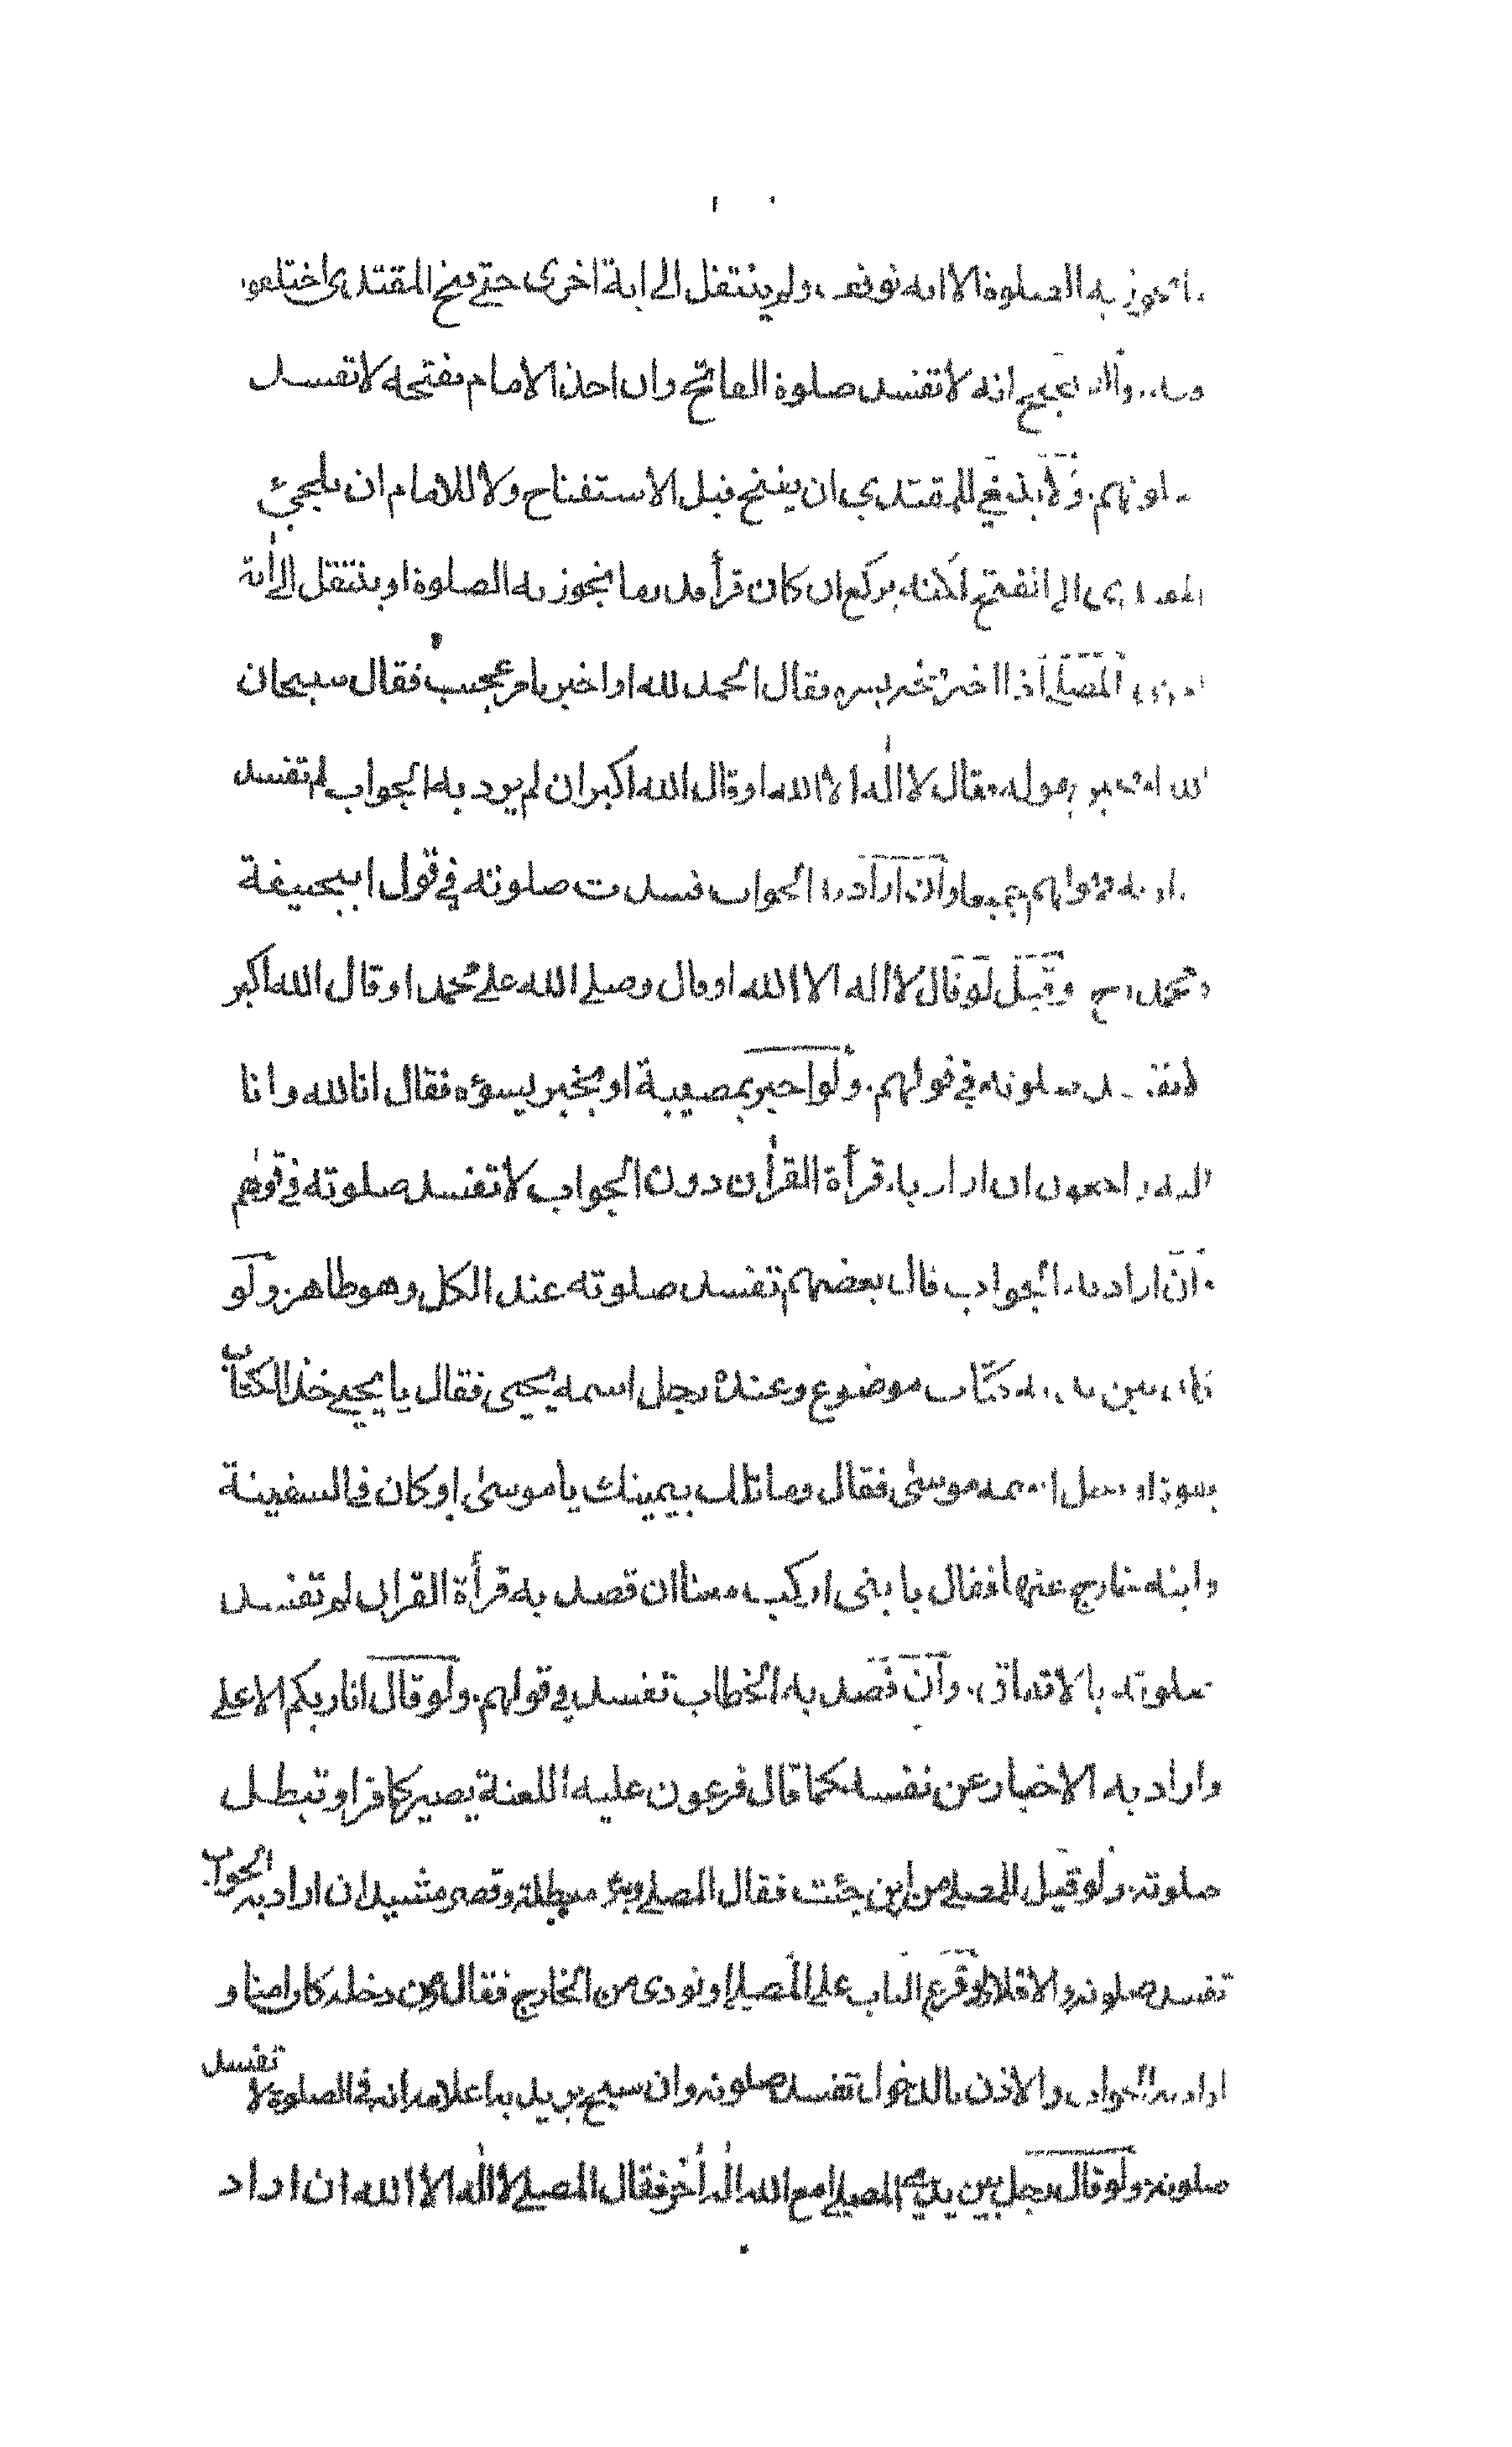 ما تجوز به الصلوة الا انه توقف ولم ينتقل الى اية اخرى حتى فتح المقتدى اختلفوا
والصحيح انه لا تفسد صلوة الفاتح وان اخذ الامام بفتحه لا تفسد
صلوتهم. ولا ينبغي للمقتدي ان يفتح قبل الاستفتاح ولا للامام ان يلجئ
المقتدى الى الفتح لكنه يركع ان كان قرأ قدر ما تجوز به الصلوة او ينتقل الى أية
اخرى المصلي اذا اخبر بخبر يسره فقال الحمد لله او اخبر بامر عجيب فقال سبحان
الله او بخبر يهوله فقال لا اله الا الله او قال الله اكبر ان لم يرد به الجواب لم تفسد
صلوته في قولهم جميعا وان اراد به الجواب فسدت صلوته في قول ابيحنيفة
ومحمد رح وقيل لو قال لا اله الا الله او قال وصلى الله على محمد او قال الله اكبر
لا تفسد صلوته في قولهم. ولو اخبر بمصيبة او بخبر يسؤه فقال انا لله وانا
اليه راجعون ان اراد به قرأة القرأن دون الجواب لا تفسد صلوته في قولهم
وان اراد به الجواب قال بعضهم تفسد صلوته عند الكل وهو ظاهر. ولو
كان بين يديه كتاب موضوع وعنده رجل اسمه يحيى فقال يا يحيى خذ الكتاب
بقوة او رجل اسمه موسى فقال وما تلك بيمينك يا موسى او كان في السفينة
وابنه خارج عنها فقال يا بنى اركب معنا ان قصد به قرأة القران لم تفسد
صلوته بالاتفاق. وان قصد به الخطاب تفسد في قولهم. ولو قال انا ربكم الاعلى
واراد به الاخبار عن نفسه كما قال فرعون عليه اللعنة يصير كافرا وتبطل
صلوته. ولو قيل للمصلي من اين جئت فقال المصلي وبئر معطلة وقصر مشيد ان اراد به الجواب
تفسد صلوته والا فلا ولو قرع الباب على المصلي او نودى من الخارج فقال ومن دخله كان امنا و
اراد به الجواب والاذن بالدخول تفسد صلوته وان سبح يريد به اعلامه انه في الصلوة لا تفسد
صلوته ولو قال رجل بين يدي المصلي امع الله اله أخر فقال المصلي لا اله الا الله ان اراد